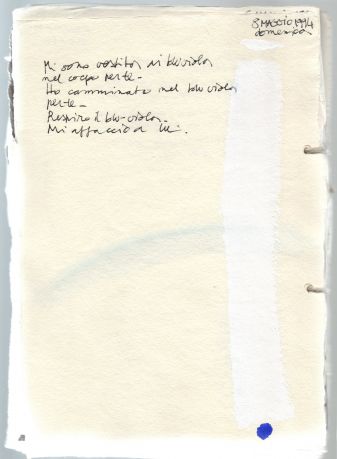 8 MAGGIO 1994
domenica
Mi sono vestita di bluviola
nel corpo per te -
Ho camminato nel blu viola
per te -
Respiro il blu-viola -
Mi affaccio a lui.